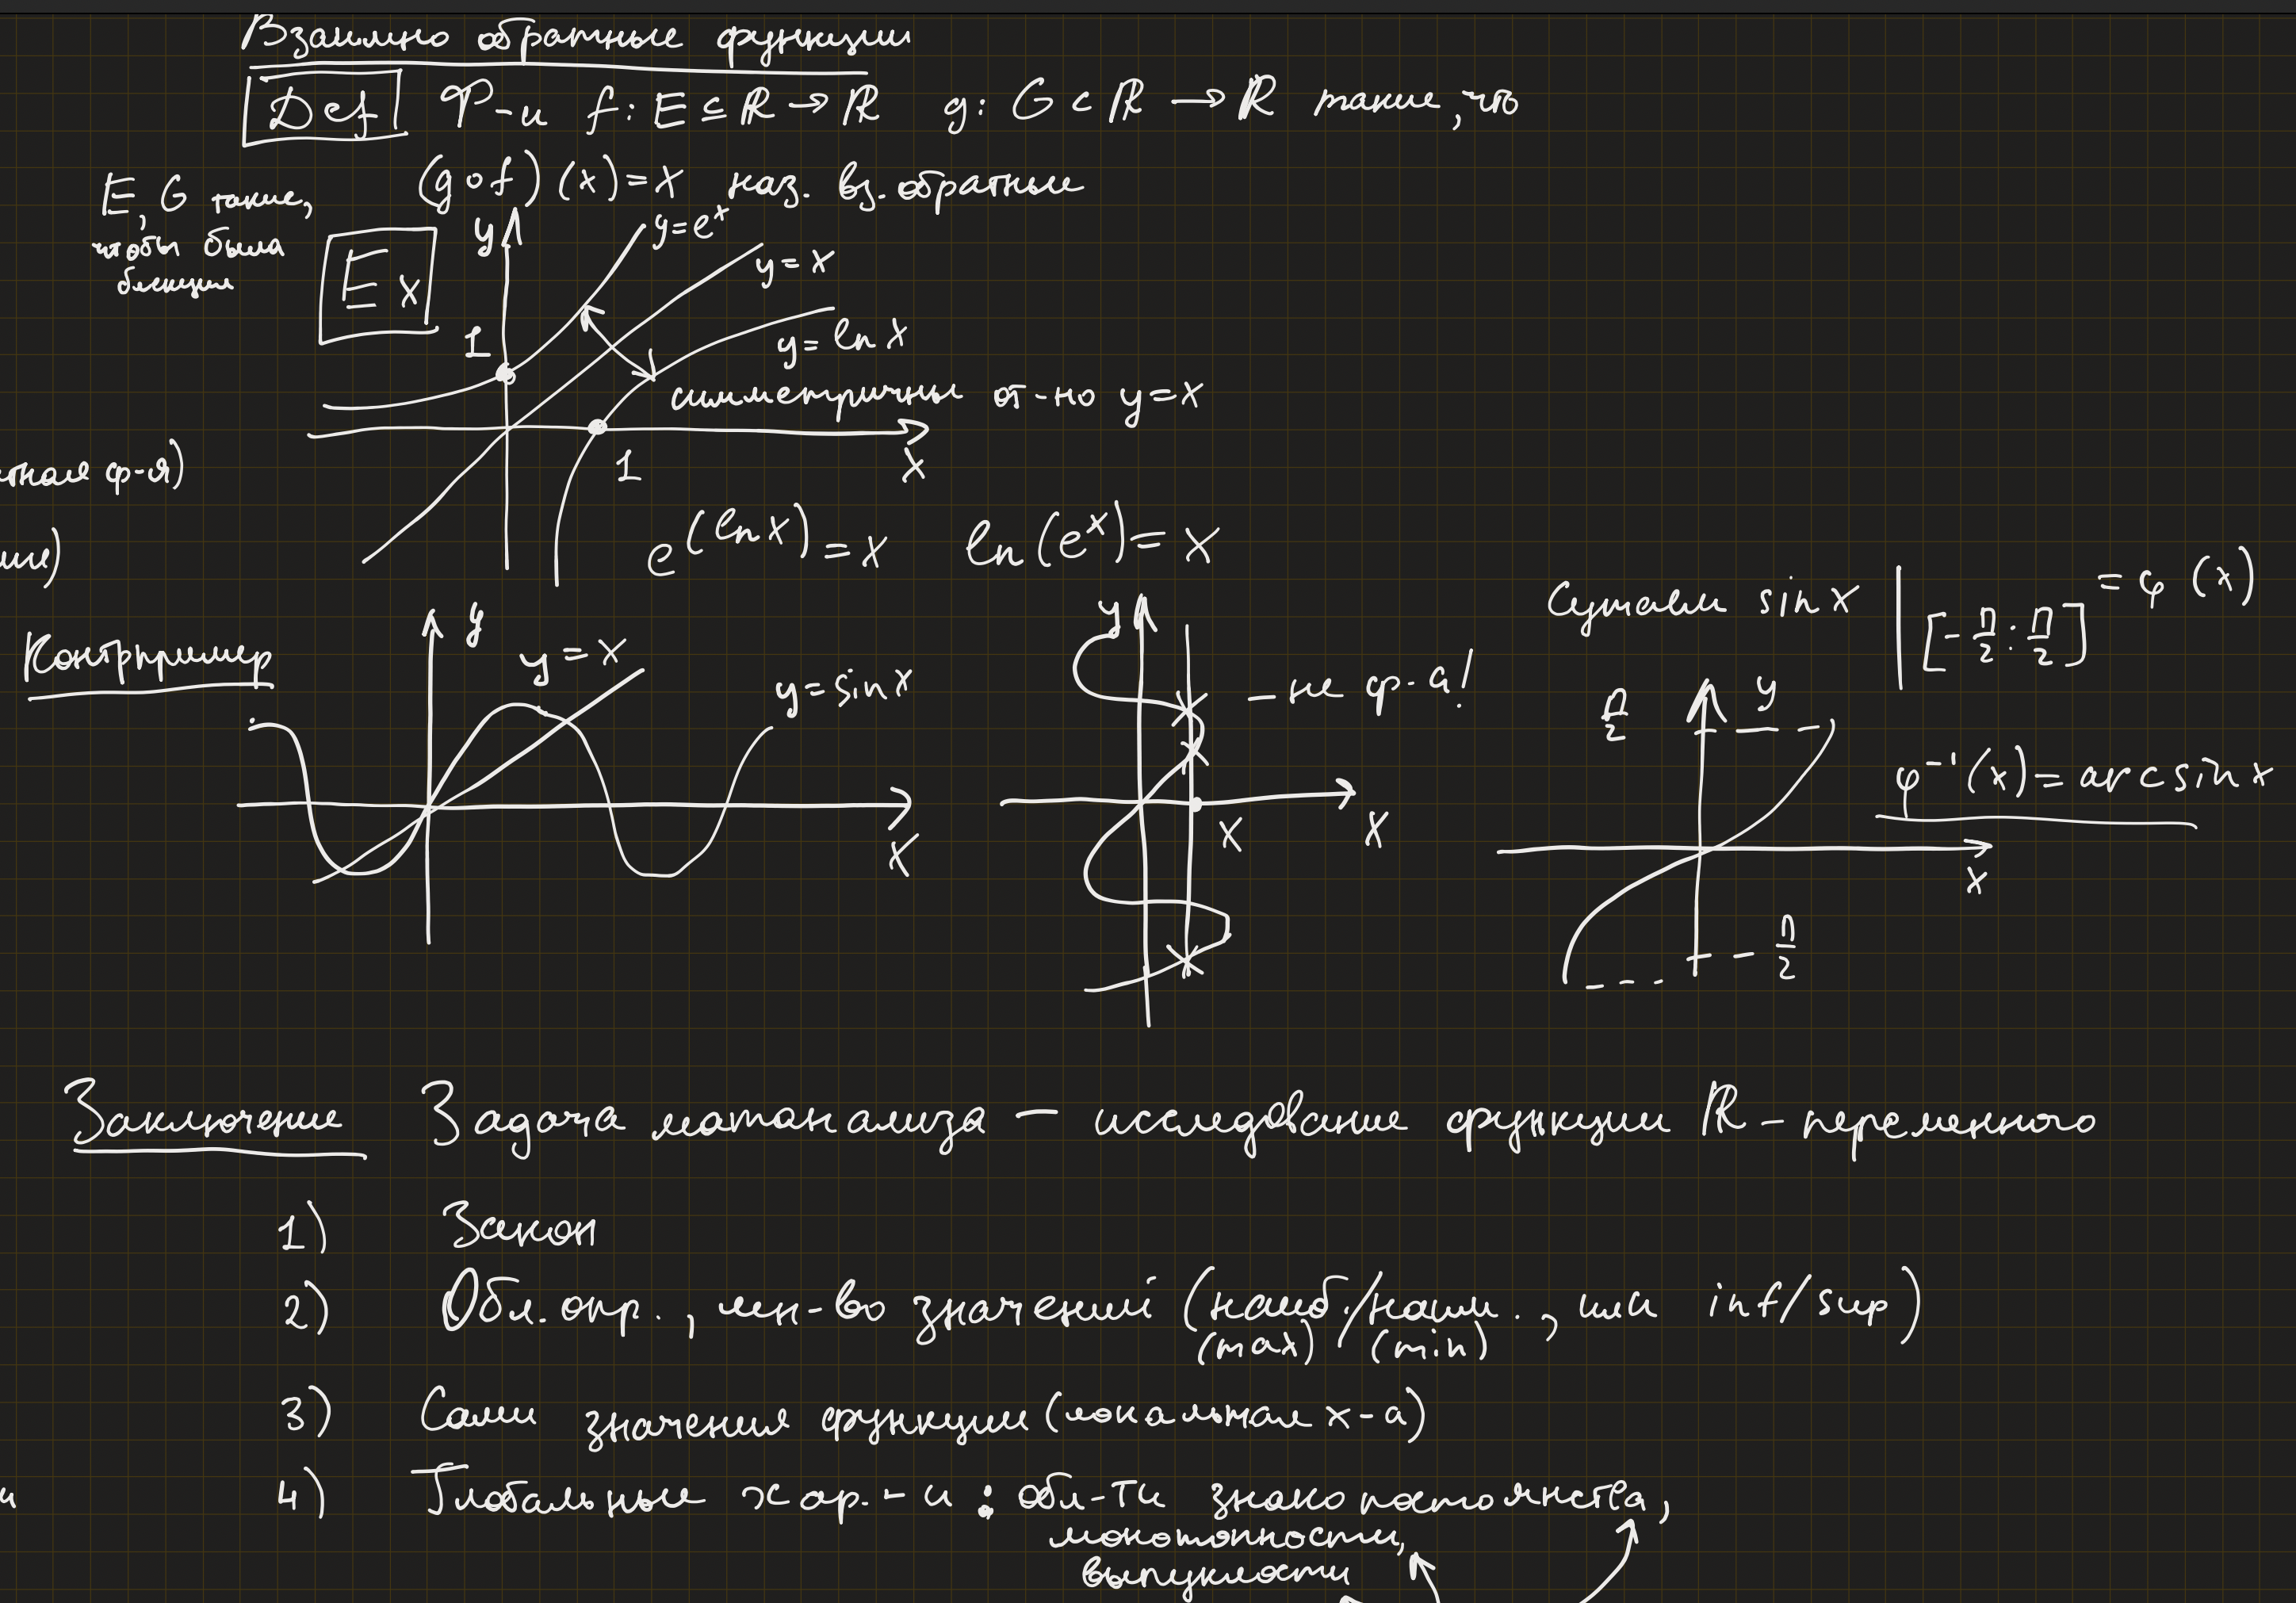 Взаимно обратные функции
Def Ф-и f: E ⊆ ℝ → ℝ g: G ⊂ ℝ → ℝ такие, что
(g∘f)(x)=x наз. вз. обратные
E, G такие,
чтобы была
биекция
Ex
y
y=eˣ
y=x
1
y=ln x
симметричны от-но y=x
1
x
ф-я)
e^(ln x) = x ln(eˣ)= x
Контрпример
y
y=x
y=sin x
x
y
- не ф-я!
x
x
Сужали sin x |[-π/2; π/2] = φ(x)
π/2
y
φ⁻¹(x)= arcsin x
x
- π/2
Заключение Задача матанализа — исследование функции ℝ-переменного
1) Закон
2) Обл. опр., мн-во значений (наиб./наим., или inf/sup)
(max) (min)
3) Сами значения функции (локальная х-а)
и
4) Глобальные хар.-и : обл-ти знакопостоянства,
монотонности,
выпуклости